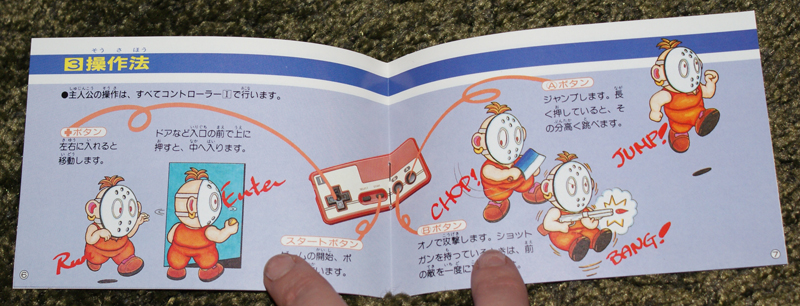 3 操作法
そうさほう
●主人公の操作は、すべてコントローラー1で行います。
✚ボタン
左右に入れると
移動します。
ドアなど入口の前で上に
押すと、中へ入ります。
Run
Enter
スタートボタン
ームの開始、ポ
います。
6
Aボタン
ジャンプします。長
く押していると、そ
の分高く跳べます。
JUMP!
CHOP!
Bボタン
オノで攻撃します。ショット
ガンを持っている
は、前
の敵を一度に
BANG!
7